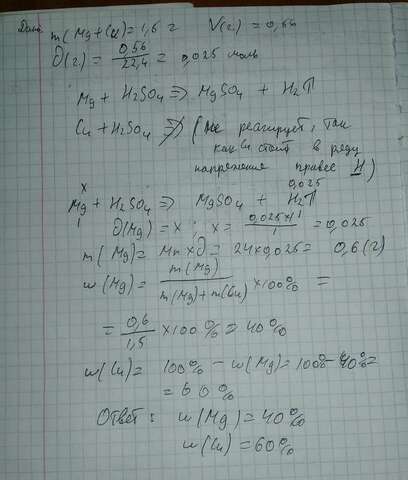 Дано: m(Mg+Cu)=1,6 г V(г.)=0,56
∂(г.)= 0,56/22,4 = 0,025 моль
Mg + H2SO4 => MgSO4 + H2↑
Cu + H2SO4 ≠> (не реагирует, так
как Cu стоит в ряду
напряжения правее H)
x 0,025
Mg + H2SO4 => MgSO4 + H2↑
1 1
∂(Mg)= x ; x = 0,025×1/1 = 0,025
m(Mg)= Mr×∂ = 24×0,025= 0,6(г)
w(Mg)= m(Mg)/m(Mg)+m(Cu) ×100% =
= 0,6/1,5 ×100% = 40%
w(Cu)= 100% - w(Mg)= 100%-40%=
= 60%
Ответ: w(Mg)=40%
w(Cu)=60%